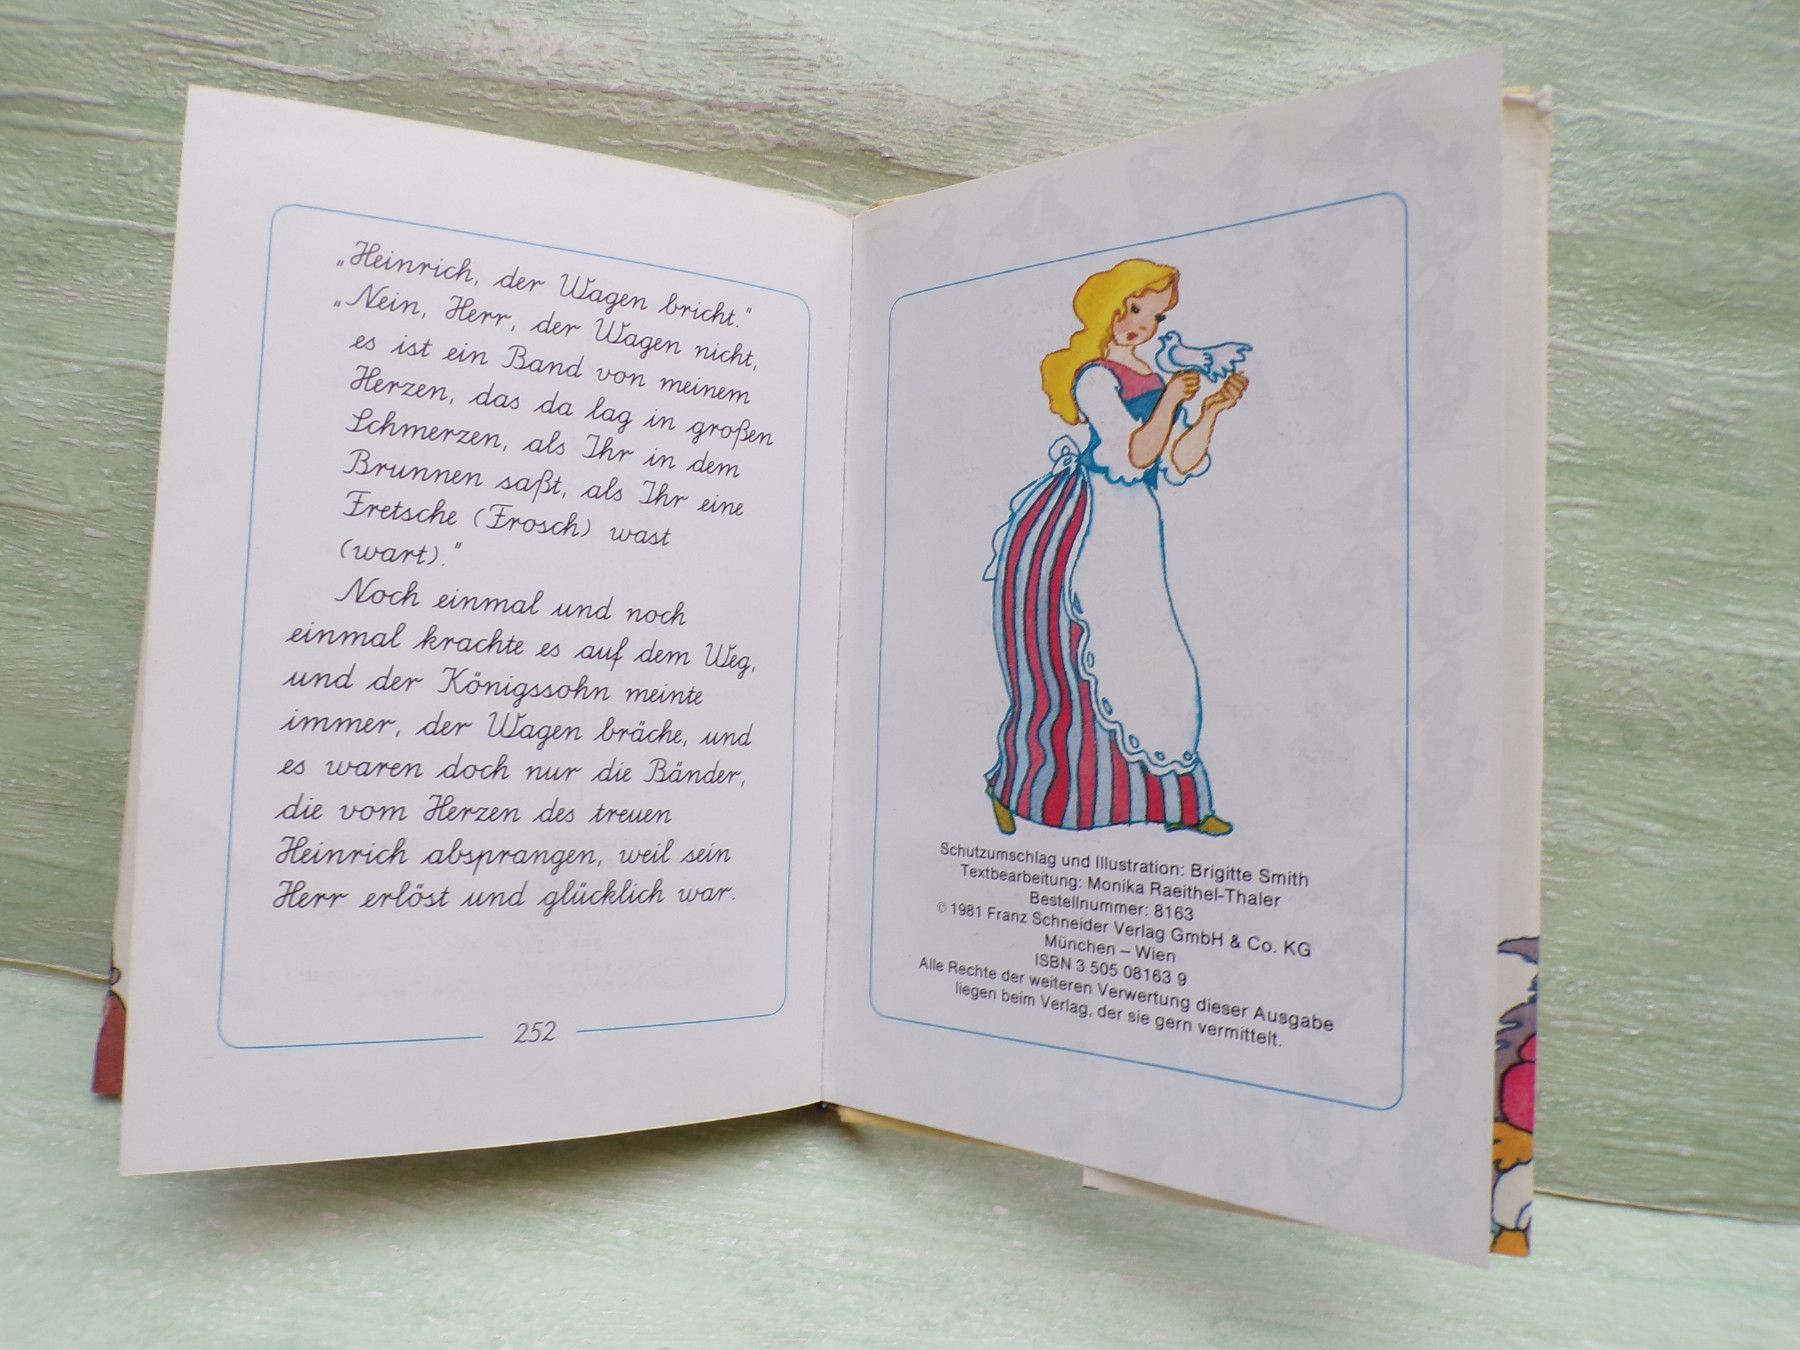 „Heinrich, der Wagen bricht."
„Nein, Herr, der Wagen nicht,
es ist ein Band von meinem
Herzen, das da lag in großen
Schmerzen, als Ihr in dem
Brunnen saßt, als Ihr eine
Fretsche (Frosch) wast
(wart)."
Noch einmal und noch
einmal krachte es auf dem Weg,
und der Königssohn meinte
immer, der Wagen bräche, und
es waren doch nur die Bänder,
die vom Herzen des treuen
Heinrich absprangen, weil sein
Herr erlöst und glücklich war.
252
Schutzumschlag und Illustration: Brigitte Smith
Textbearbeitung: Monika Raeithel-Thaler
Bestellnummer: 8163
© 1981 Franz Schneider Verlag GmbH & Co. KG
München – Wien
ISBN 3 505 08163 9
Alle Rechte der weiteren Verwertung dieser Ausgabe
liegen beim Verlag, der sie gern vermittelt.